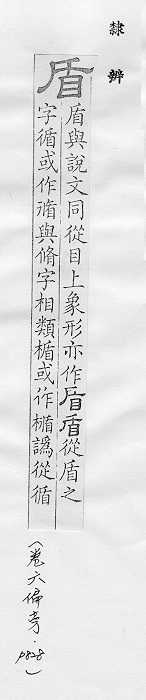 隸辨
盾
盾與說文同從目上象形亦作盾從盾之
字循或作與脩字相類楯或作譌從循
(卷六偏旁.p828)